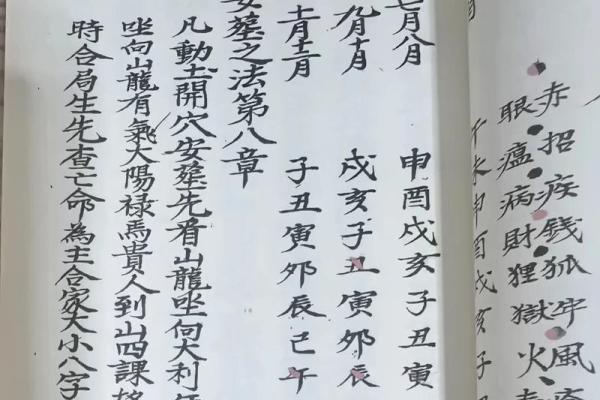 赤招疾錢狐牢風疹
眼瘟病財狸獄火
子未申酉戌亥子
七月八月 申酉戌亥子丑寅
九月十月 戌亥子丑寅夘辰
十一月十二月 子丑寅夘辰巳午
安葬之法第八章
凡動土開穴安葬先看山龍坐向大利年
坐向山龍有氣太陽禄馬貴人到山四課
時合局生先查亡命為主合家大小八字